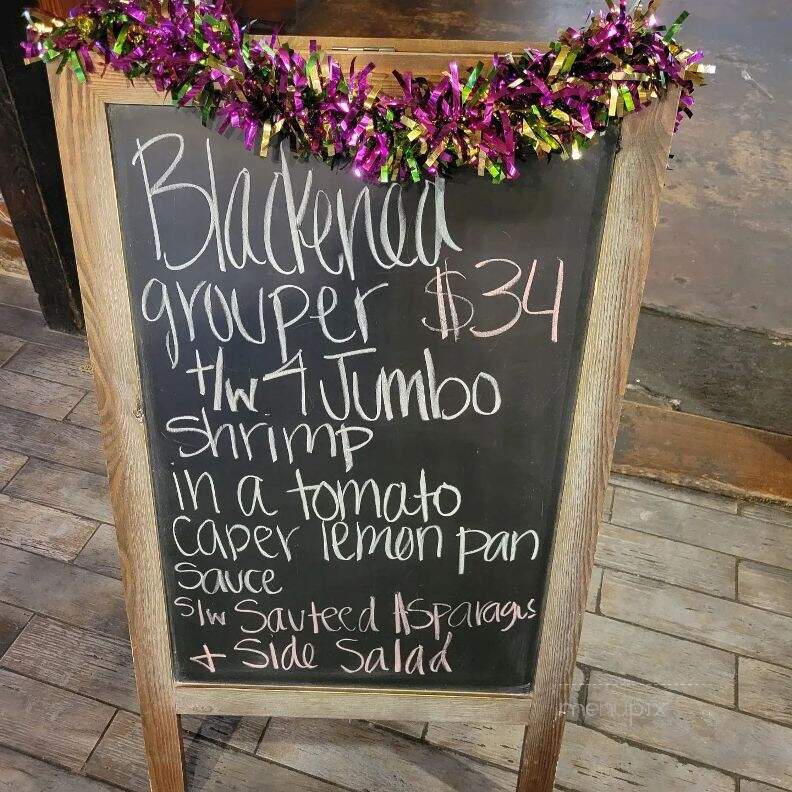 Blackened
grouper $34
t/w 4 Jumbo
shrimp
in a tomato
caper lemon pan
sauce
s/w Sauteed Asparagus
+ Side Salad
menupix